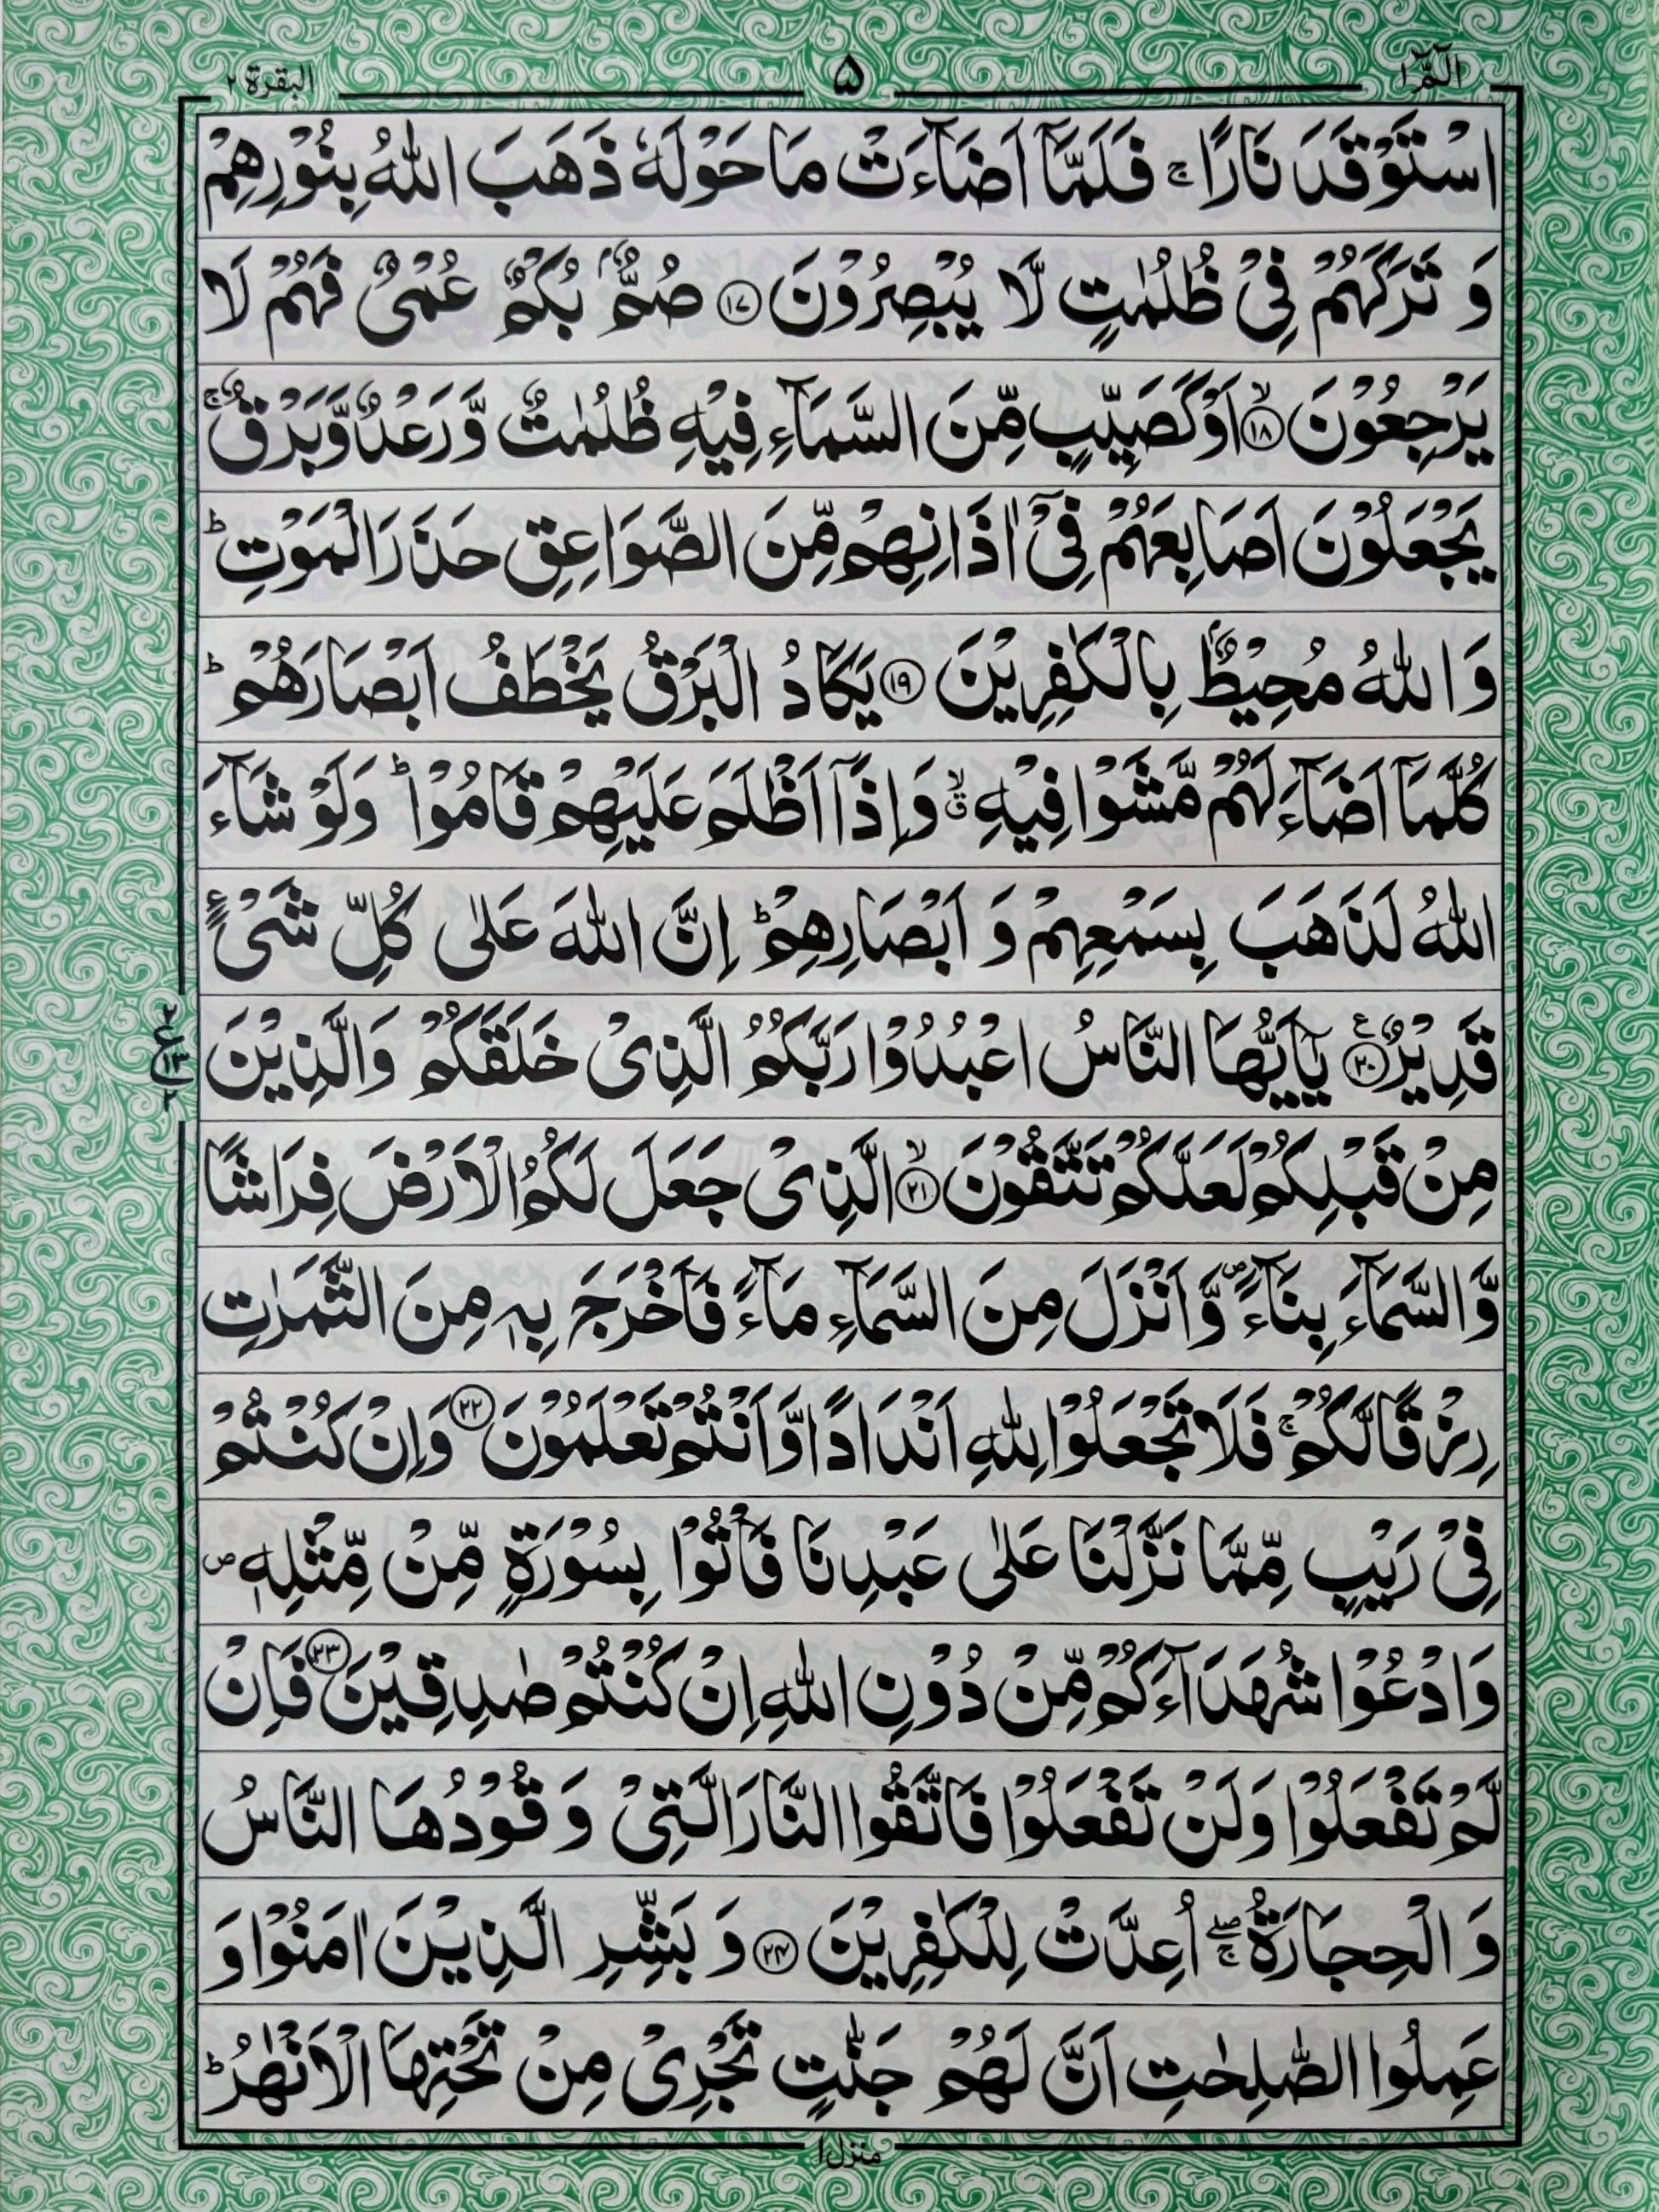 الٓمّٓ ۱
۵
البقرة ۲
اسْتَوْقَدَ نَارًا ۚ فَلَمَّاۤ اَضَآءَتْ مَا حَوْلَهٗ ذَهَبَ اللّٰهُ بِنُوْرِهِمْ
وَ تَرَكَهُمْ فِیْ ظُلُمٰتٍ لَّا یُبْصِرُوْنَ ﴿۱۷﴾ صُمٌّۢ بُكْمٌ عُمْیٌ فَهُمْ لَا
یَرْجِعُوْنَ ﴿۱۸﴾ۙ اَوْ كَصَیِّبٍ مِّنَ السَّمَآءِ فِیْهِ ظُلُمٰتٌ وَّ رَعْدٌ وَّ بَرْقٌ ۚ
یَجْعَلُوْنَ اَصَابِعَهُمْ فِیْۤ اٰذَانِهِمْ مِّنَ الصَّوَاعِقِ حَذَرَ الْمَوْتِ ؕ
وَ اللّٰهُ مُحِیْطٌۢ بِالْكٰفِرِیْنَ ﴿۱۹﴾ یَكَادُ الْبَرْقُ یَخْطَفُ اَبْصَارَهُمْ ؕ
كُلَّمَاۤ اَضَآءَ لَهُمْ مَّشَوْا فِیْهِ ۙۗ وَ اِذَاۤ اَظْلَمَ عَلَیْهِمْ قَامُوْا ؕ وَ لَوْ شَآءَ
اللّٰهُ لَذَهَبَ بِسَمْعِهِمْ وَ اَبْصَارِهِمْ ؕ اِنَّ اللّٰهَ عَلٰی كُلِّ شَیْءٍ
قَدِیْرٌ ﴿۲۰﴾ع یٰۤاَیُّهَا النَّاسُ اعْبُدُوْا رَبَّكُمُ الَّذِیْ خَلَقَكُمْ وَ الَّذِیْنَ
مِنْ قَبْلِكُمْ لَعَلَّكُمْ تَتَّقُوْنَ ﴿۲۱﴾ۙ الَّذِیْ جَعَلَ لَكُمُ الْاَرْضَ فِرَاشًا
وَّ السَّمَآءَ بِنَآءً ۪ وَّ اَنْزَلَ مِنَ السَّمَآءِ مَآءً فَاَخْرَجَ بِهٖ مِنَ الثَّمَرٰتِ
رِزْقًا لَّكُمْ ۚ فَلَا تَجْعَلُوْا لِلّٰهِ اَنْدَادًا وَّ اَنْتُمْ تَعْلَمُوْنَ ﴿۲۲﴾ وَ اِنْ كُنْتُمْ
فِیْ رَیْبٍ مِّمَّا نَزَّلْنَا عَلٰی عَبْدِنَا فَاْتُوْا بِسُوْرَةٍ مِّنْ مِّثْلِهٖ ۪
وَ ادْعُوْا شُهَدَآءَكُمْ مِّنْ دُوْنِ اللّٰهِ اِنْ كُنْتُمْ صٰدِقِیْنَ ﴿۲۳﴾ فَاِنْ
لَّمْ تَفْعَلُوْا وَ لَنْ تَفْعَلُوْا فَاتَّقُوا النَّارَ الَّتِیْ وَ قُوْدُهَا النَّاسُ
وَ الْحِجَارَةُ ۖۚ اُعِدَّتْ لِلْكٰفِرِیْنَ ﴿۲۴﴾ وَ بَشِّرِ الَّذِیْنَ اٰمَنُوْا وَ
عَمِلُوا الصّٰلِحٰتِ اَنَّ لَهُمْ جَنّٰتٍ تَجْرِیْ مِنْ تَحْتِهَا الْاَنْهٰرُ ؕ
منزل ۱